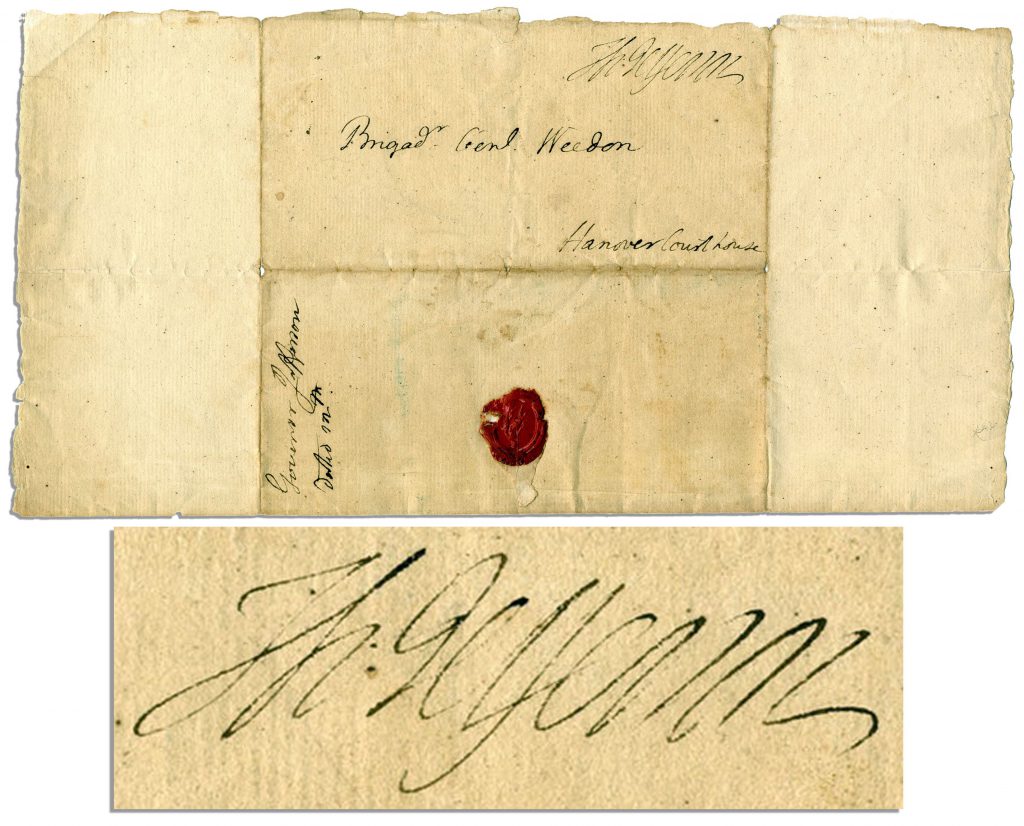 Th: Jefferson
Brigadr. Genl. Weedon
Hanover Court house
Governor Jefferson
Th: Jefferson